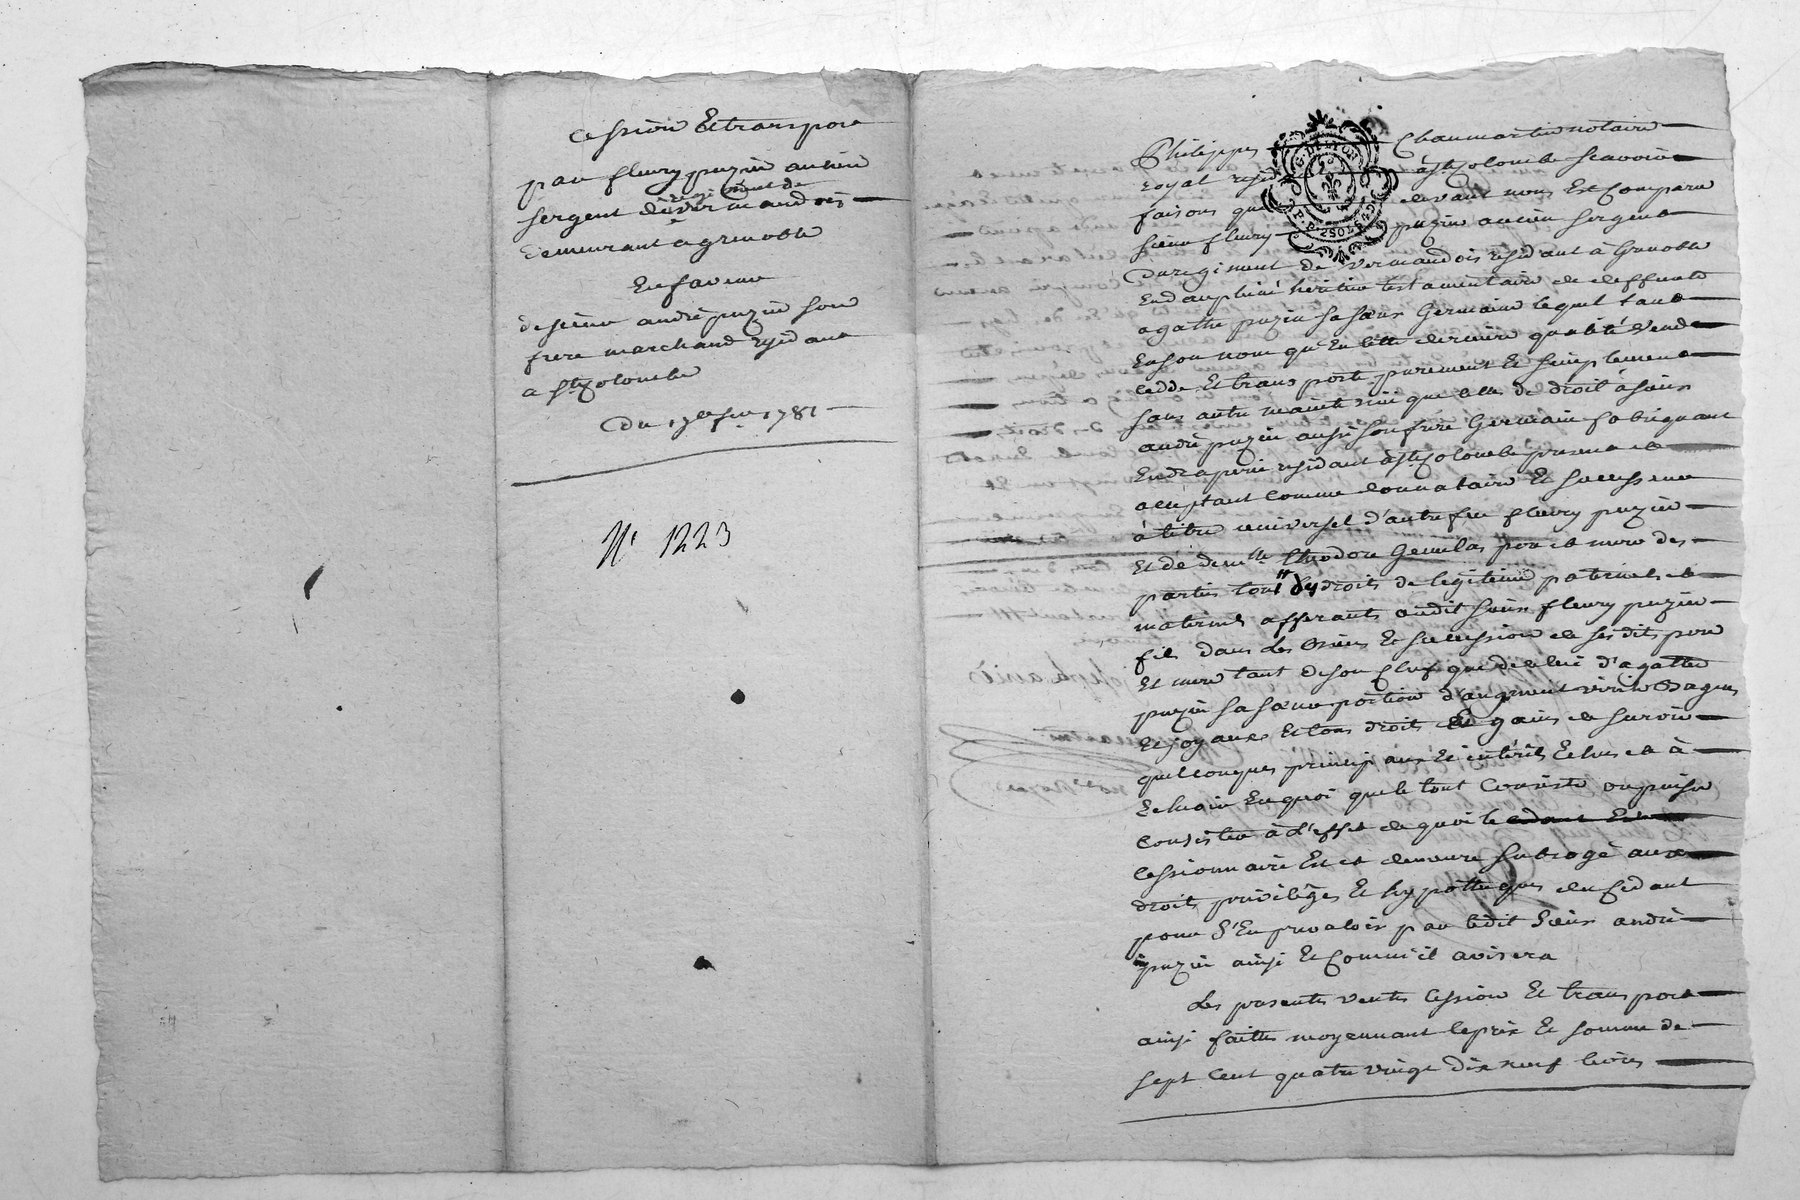 Cession Et transpore
par fleury puzin ancien
regiment de
sergent de vermandois
demeurant a grenoble
En faveur
de sieur andré puzin son
frere marchand residant
a Ste Colombe
Du 1781
N° 1223
Philippes Chaumartin notaire
royal resid à Ste Colombe scavoir
faisons que devant nous Est Comparu
sieur fleury puzin ancien sergent
Du regiment de Vermandois residant à Grenoble
En dauphiné heritier testamentaire de deffunte
agathe puzin sa sœur Germaine lequel tant
En son nom qu'En cette derniere qualité Vend
cedde Et transporte purement Et simplement
sans autre maintenüe que celle de droit à sieur
andré puzin aussi son frere Germain fabriquant
En draperie residant à Ste Colombe present et
aceptant comme donnataire Et successeur
à titre universel d'autre feu fleury puzin
Et de demlle Theodore pere et mere des
parties tous les droits de legitime paternels et
maternels afferants audit sieur fleury puzin
fils dans les Biens Et succession de ses dits pere
Et mere tant de son Chef que de celui d'agathe
puzin sa sœur portion d'augment Bagues
Et joyaux Et tous droits Et gains de survie
quelconques principaux Et interêts Echus et à
Echeoir En quoi que le tout Consiste ou puisse
Consister à L'effet de quoi le cedant Est
Cessionnaire Est et demeure subrogé aux
droits privilèges Et hypotheques du Cedant
pour s'En prevaloir par ledit sieur andré
puzin ainsi Et Comm'il avisera
Les presentes ventes Cession Et transport
ainsi faittes moyennant le prix Et somme de
sept Cent quatre vingt dix neuf livres